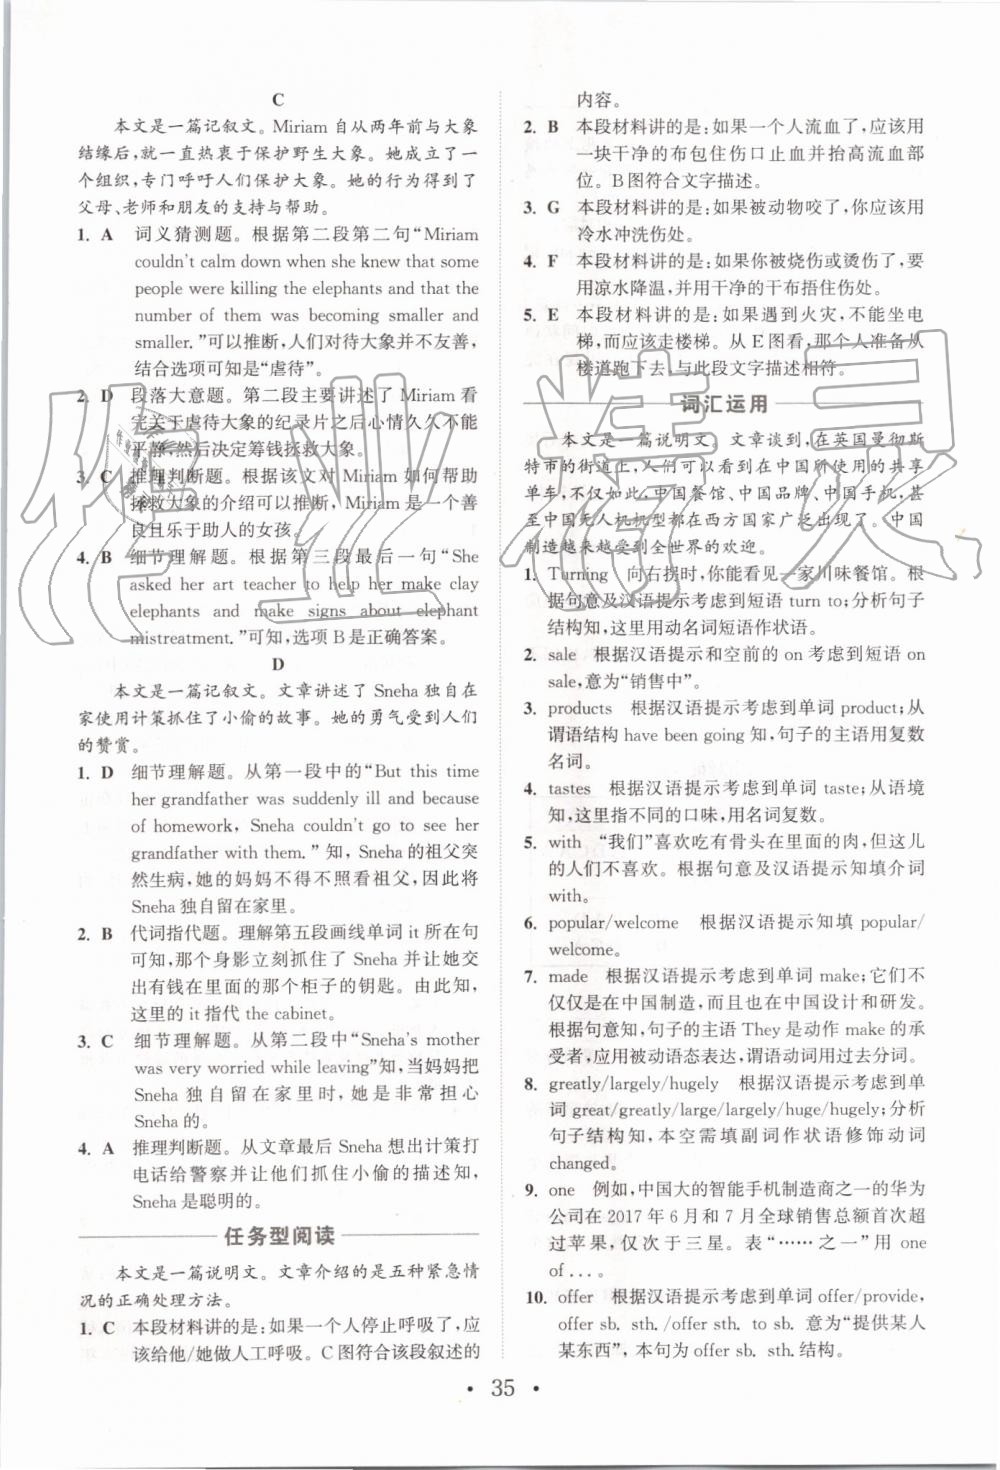 C
本文是一篇记叙文。Miriam 自从两年前与大象
结缘后，就一直热衷于保护野生大象。她成立了一
个组织，专门呼吁人们保护大象。她的行为得到了
父母、老师和朋友的支持与帮助。
1. A 词义猜测题。根据第二段第二句“Miriam
couldn't calm down when she knew that some
people were killing the elephants and that the
number of them was becoming smaller and
smaller.”可以推断，人们对待大象并不友善，
结合选项可知是“虐待”。
2. D 段落大意题。第二段主要讲述了 Miriam 看
完关于虐待大象的纪录片之后心情久久不能
平静，然后决定筹钱拯救大象。
3. C 推理判断题。根据该文对 Miriam 如何帮助
拯救大象的介绍可以推断，Miriam 是一个善
良且乐于助人的女孩。
4. B 细节理解题。根据第三段最后一句“She
asked her art teacher to help her make clay
elephants and make signs about elephant
mistreatment.”可知，选项 B 是正确答案。
D
本文是一篇记叙文。文章讲述了 Sneha 独自在
家使用计策抓住了小偷的故事。她的勇气受到人们
的赞赏。
1. D 细节理解题。从第一段中的“But this time
her grandfather was suddenly ill and because
of homework, Sneha couldn't go to see her
grandfather with them.”知，Sneha 的祖父突
然生病，她的妈妈不得不照看祖父，因此将
Sneha 独自留在家里。
2. B 代词指代题。理解第五段画线单词 it 所在句
可知，那个身影立刻抓住了 Sneha 并让她交
出有钱在里面的那个柜子的钥匙。由此知，
这里的 it 指代 the cabinet。
3. C 细节理解题。从第二段中“Sneha's mother
was very worried while leaving”知，当妈妈把
Sneha 独自留在家里时，她是非常担心
Sneha 的。
4. A 推理判断题。从文章最后 Sneha 想出计策打
电话给警察并让他们抓住小偷的描述知，
Sneha 是聪明的。
任务型阅读
本文是一篇说明文。文章介绍的是五种紧急情
况的正确处理方法。
1. C 本段材料讲的是：如果一个人停止呼吸了，应
该给他/她做人工呼吸。C 图符合该段叙述的
内容。
2. B 本段材料讲的是：如果一个人流血了，应该用
一块干净的布包住伤口止血并抬高流血部
位。B 图符合文字描述。
3. G 本段材料讲的是：如果被动物咬了，你应该用
冷水冲洗伤处。
4. F 本段材料讲的是：如果你被烧伤或烫伤了，要
用凉水降温，并用干净的干布捂住伤处。
5. E 本段材料讲的是：如果遇到火灾，不能坐电
梯，而应该走楼梯。从 E 图看，那个人准备从
楼道跑下去，与此段文字描述相符。
词汇运用
本文是一篇说明文。文章谈到，在英国曼彻斯
特市的街道上，人们可以看到在中国所使用的共享
单车，不仅如此，中国餐馆、中国品牌、中国手机，甚
至中国无人机机型都在西方国家广泛出现了。中国
制造越来越受到全世界的欢迎。
1. Turning 向右拐时，你能看见一家川味餐馆。根
据句意及汉语提示考虑到短语 turn to；分析句子
结构知，这里用动名词短语作状语。
2. sale 根据汉语提示和空前的 on 考虑到短语 on
sale，意为“销售中”。
3. products 根据汉语提示考虑到单词 product；从
谓语结构 have been going 知，句子的主语用复数
名词。
4. tastes 根据汉语提示考虑到单词 taste；从语境
知，这里指不同的口味，用名词复数。
5. with “我们”喜欢吃有骨头在里面的肉，但这儿
的人们不喜欢。根据句意及汉语提示知填介词
with。
6. popular/welcome 根据汉语提示知填 popular/
welcome。
7. made 根据汉语提示考虑到单词 make；它们不
仅仅是在中国制造，而且也在中国设计和研发。
根据句意知，句子的主语 They 是动作 make 的承
受者，应用被动语态表达，谓语动词用过去分词。
8. greatly/largely/hugely 根据汉语提示考虑到单
词 great/greatly/large/largely/huge/hugely；分析
句子结构知，本空需填副词作状语修饰动词
changed。
9. one 例如，中国大的智能手机制造商之一的华为
公司在 2017 年 6 月和 7 月全球销售总额首次超
过苹果，仅次于三星。表“……之一”用 one
of...。
10. offer 根据汉语提示考虑到单词 offer/provide，
offer sb. sth./offer sth. to sb. 意为“提供某人
某东西”，本句为 offer sb. sth. 结构。
· 35 ·
作业精灵